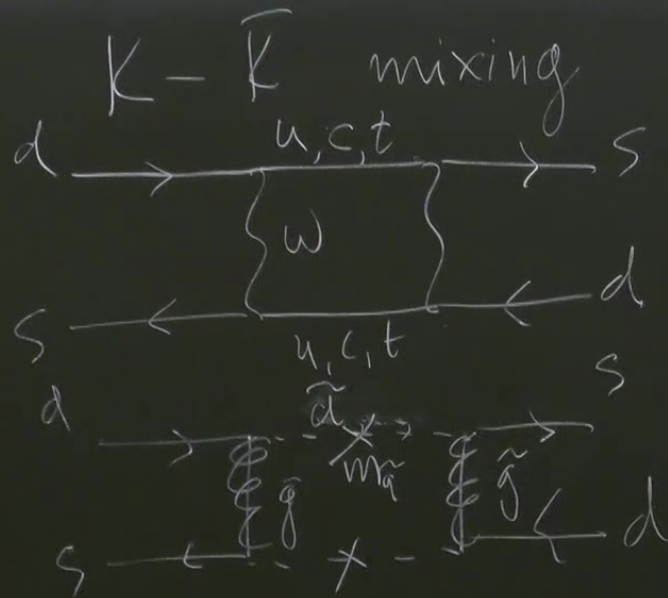 K - K̄ mixing
u, c, t
d s
W
s d
u, c, t
d d̃ s
m_q̃
g̃ g̃
s d